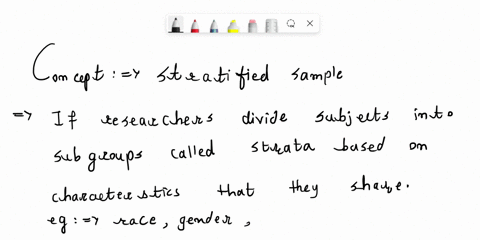 Concept :=> stratified sample
=> If researchers divide subjects into
subgroups called strata based on
characterstics that they share.
eg :=> race, gender,